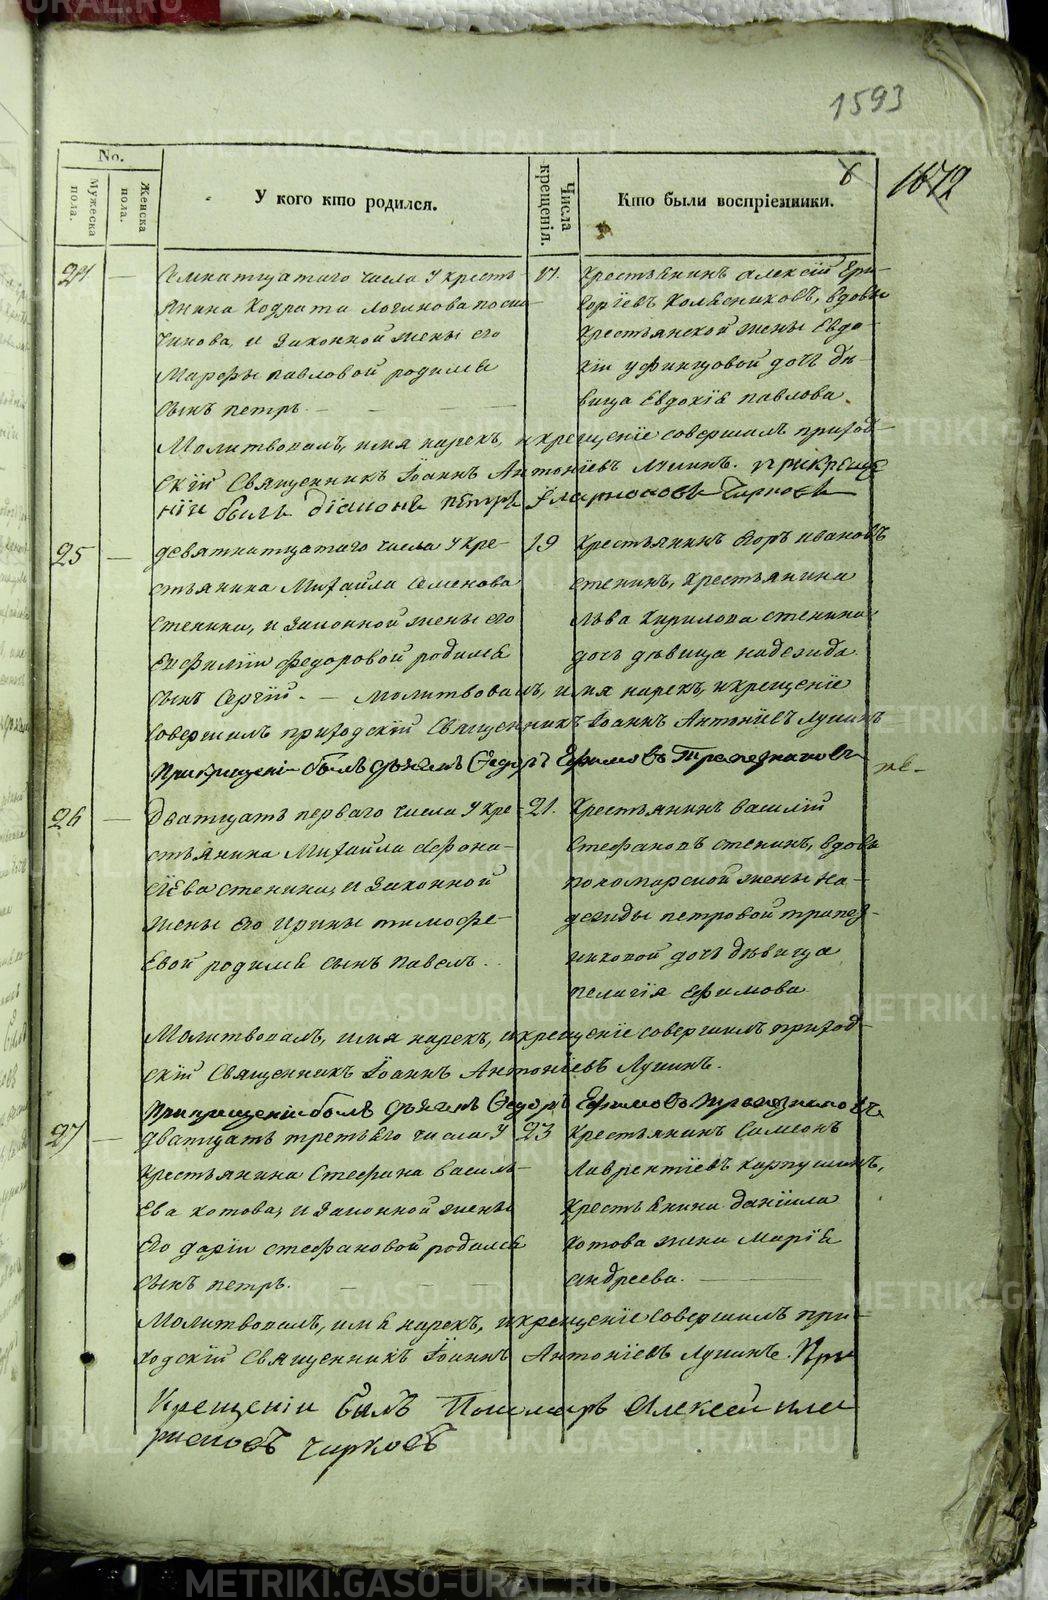 METRIKI.GASO-URAL.RU
1593
1672
6
No.
Мужеска пола.
Женска пола.
У кого кто родился.
Числа крещенія.
Кто были воспріемники.
24 — Семнатцатаго числа у кресть-
янина Кодрата Логинова
и законной жены его
Марфы Павловой родился
сынъ Петръ.
17. Крестьянинъ Алексій Гри-
горіевъ Колесниковъ, вдовы
крестьянской жены Евдо-
кіи Уфинцовой дочь дѣ-
вица Евдокія Павлова.
Молитвовалъ, имя нарекъ, и крещеніе совершилъ приход-
скій Священникъ Іоаннъ Антоніевъ Лушинъ. При креще
ніи былъ діаконъ Петръ Иларіоновъ Чирковъ
25 — девятнатцатаго числа у кре-
стьянина Михайла Семенова
Стенина, и законной жены его
Евфиміи Федоровой родился
сынъ Сергій. —
19 Крестьянинъ Егоръ Ивановъ
Стенинъ, крестьянина
Льва Кирилова Стенина
дочь дѣвица Надежда.
Молитвовалъ, имя нарекъ, и крещеніе
совершилъ приходскій Священникъ Іоаннъ Антоніевъ Лушинъ
При крещеніи былъ дьячекъ Ѳедоръ Ефимовъ Трапезниковъ
26 — Дватцать перваго числа у кре-
стьянина Михайла Афона-
сіева Стенина, и законной
жены его Ирины Тимофе-
евой родился сынъ Павелъ.
21. Крестьянинъ Василій
Стефановъ Стенинъ, вдовы
пономарской жены На-
дежды Петровой Трапез-
никовой дочь дѣвица
Пелагія Ефимова
Молитвовалъ, имя нарекъ, и крещеніе совершилъ приход-
скій Священникъ Іоаннъ Антоніевъ Лушинъ.
При крещеніи былъ дьячекъ Ѳедоръ Ефимовъ Трапезниковъ
27 — дватцать третьяго числа у
крестьянина Стефана Василь-
ева Котова, и законной жены
его Даріи Стефановой родился
сынъ Петръ.
23 Крестьянинъ Симеонъ
Лаврентіевъ Карпушинъ,
крестьянина Даніила
Котова жена Марія
Андреева.
Молитвовалъ, имя нарекъ, и крещеніе совершилъ при-
ходскій Священникъ Іоаннъ Антоніевъ Лушинъ. При
крещеніи былъ Пономарь Алексей Ила
ріоновъ Чирковъ